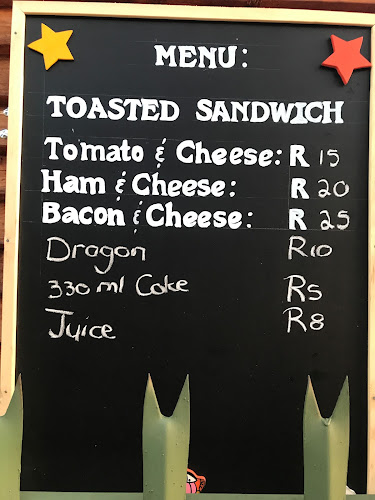 MENU:
TOASTED SANDWICH
Tomato & Cheese: R 15
Ham & Cheese: R 20
Bacon & Cheese: R 25
Dragon R10
330 ml Coke R5
Juice R8